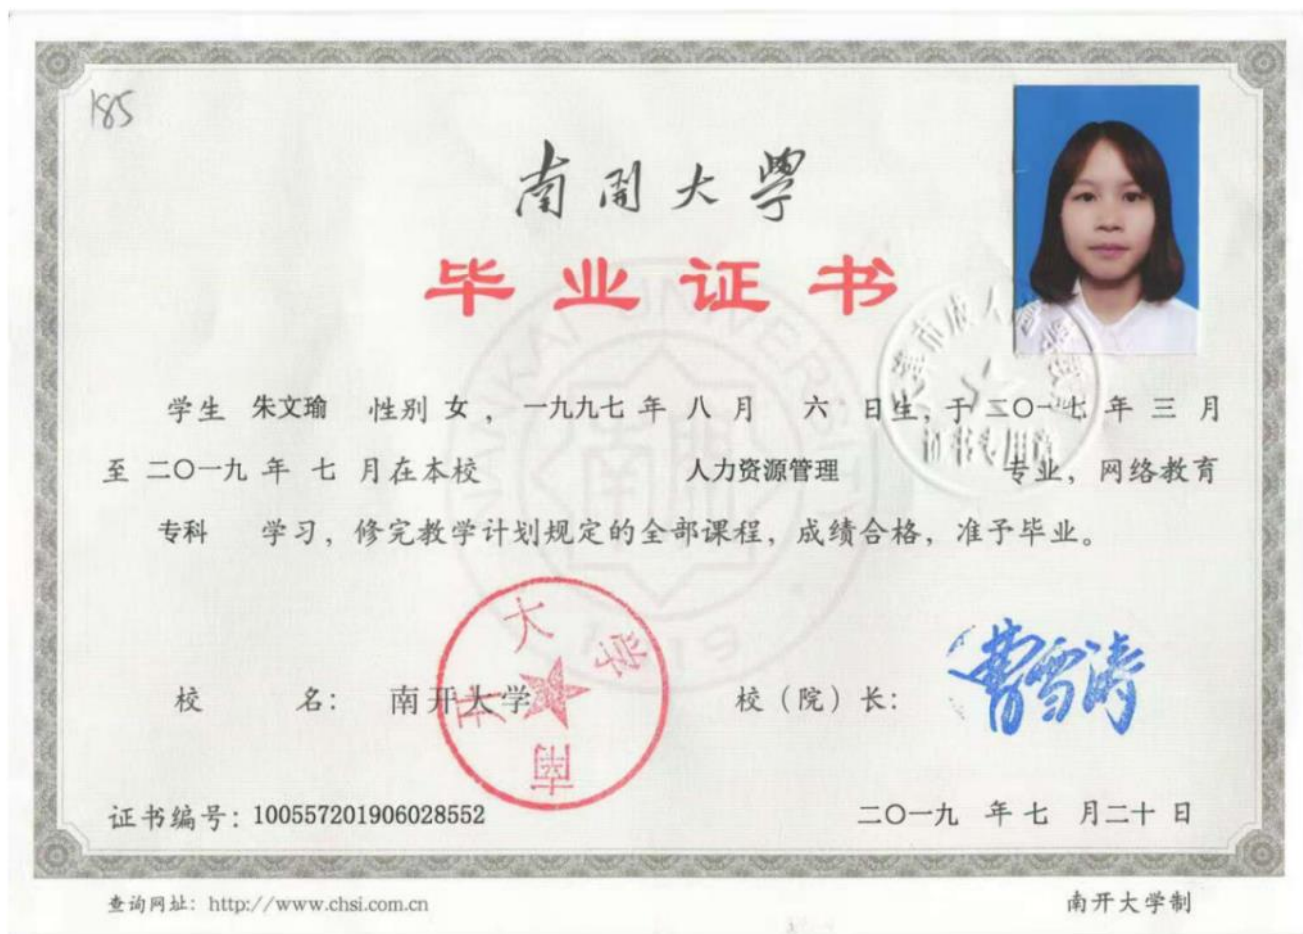 185
南開大學
毕业证书
学生 朱文瑜 性别 女 ，一九九七 年 八 月 六 日生，于 二〇一七 年 三 月
至 二〇一九 年 七 月在本校 人力资源管理 专业，网络教育
专科 学习，修完教学计划规定的全部课程，成绩合格，准予毕业。
校 名：南开大学
校（院）长：曹雪涛
南开大学
证书编号：100557201906028552
二〇一九 年 七 月二十 日
查询网址：http://www.chsi.com.cn
南开大学制